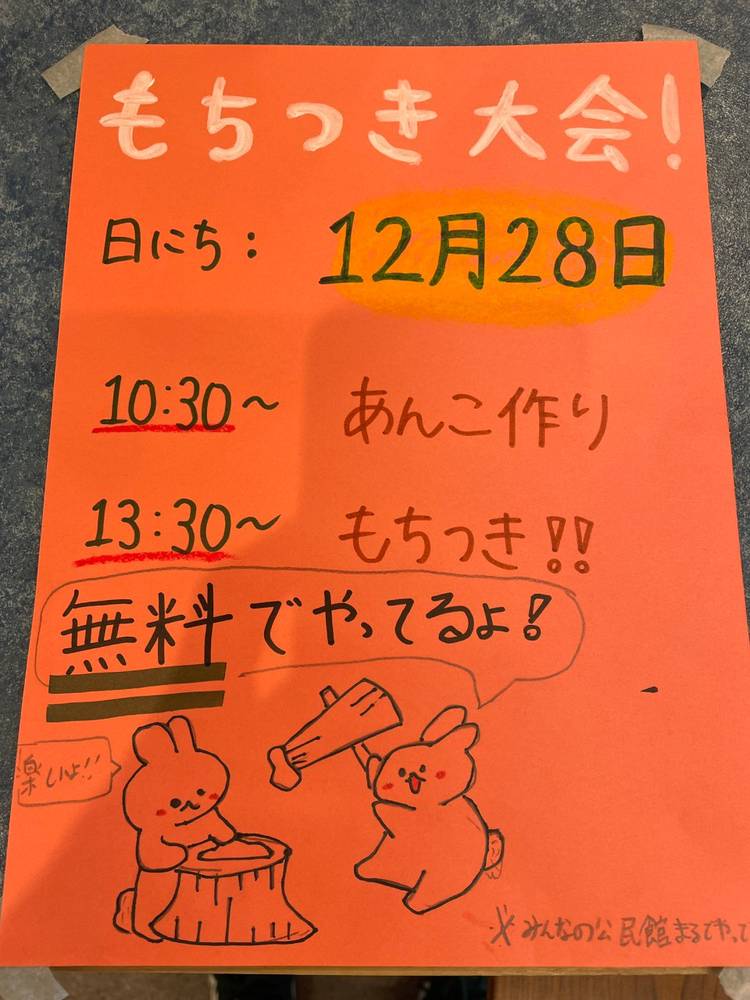 もちつき大会!
日にち: 12月28日
10:30~ あんこ作り
13:30~ もちつき!!
無料でやってるよ!
楽しいよ!!
※みんなの公民館まるでやって